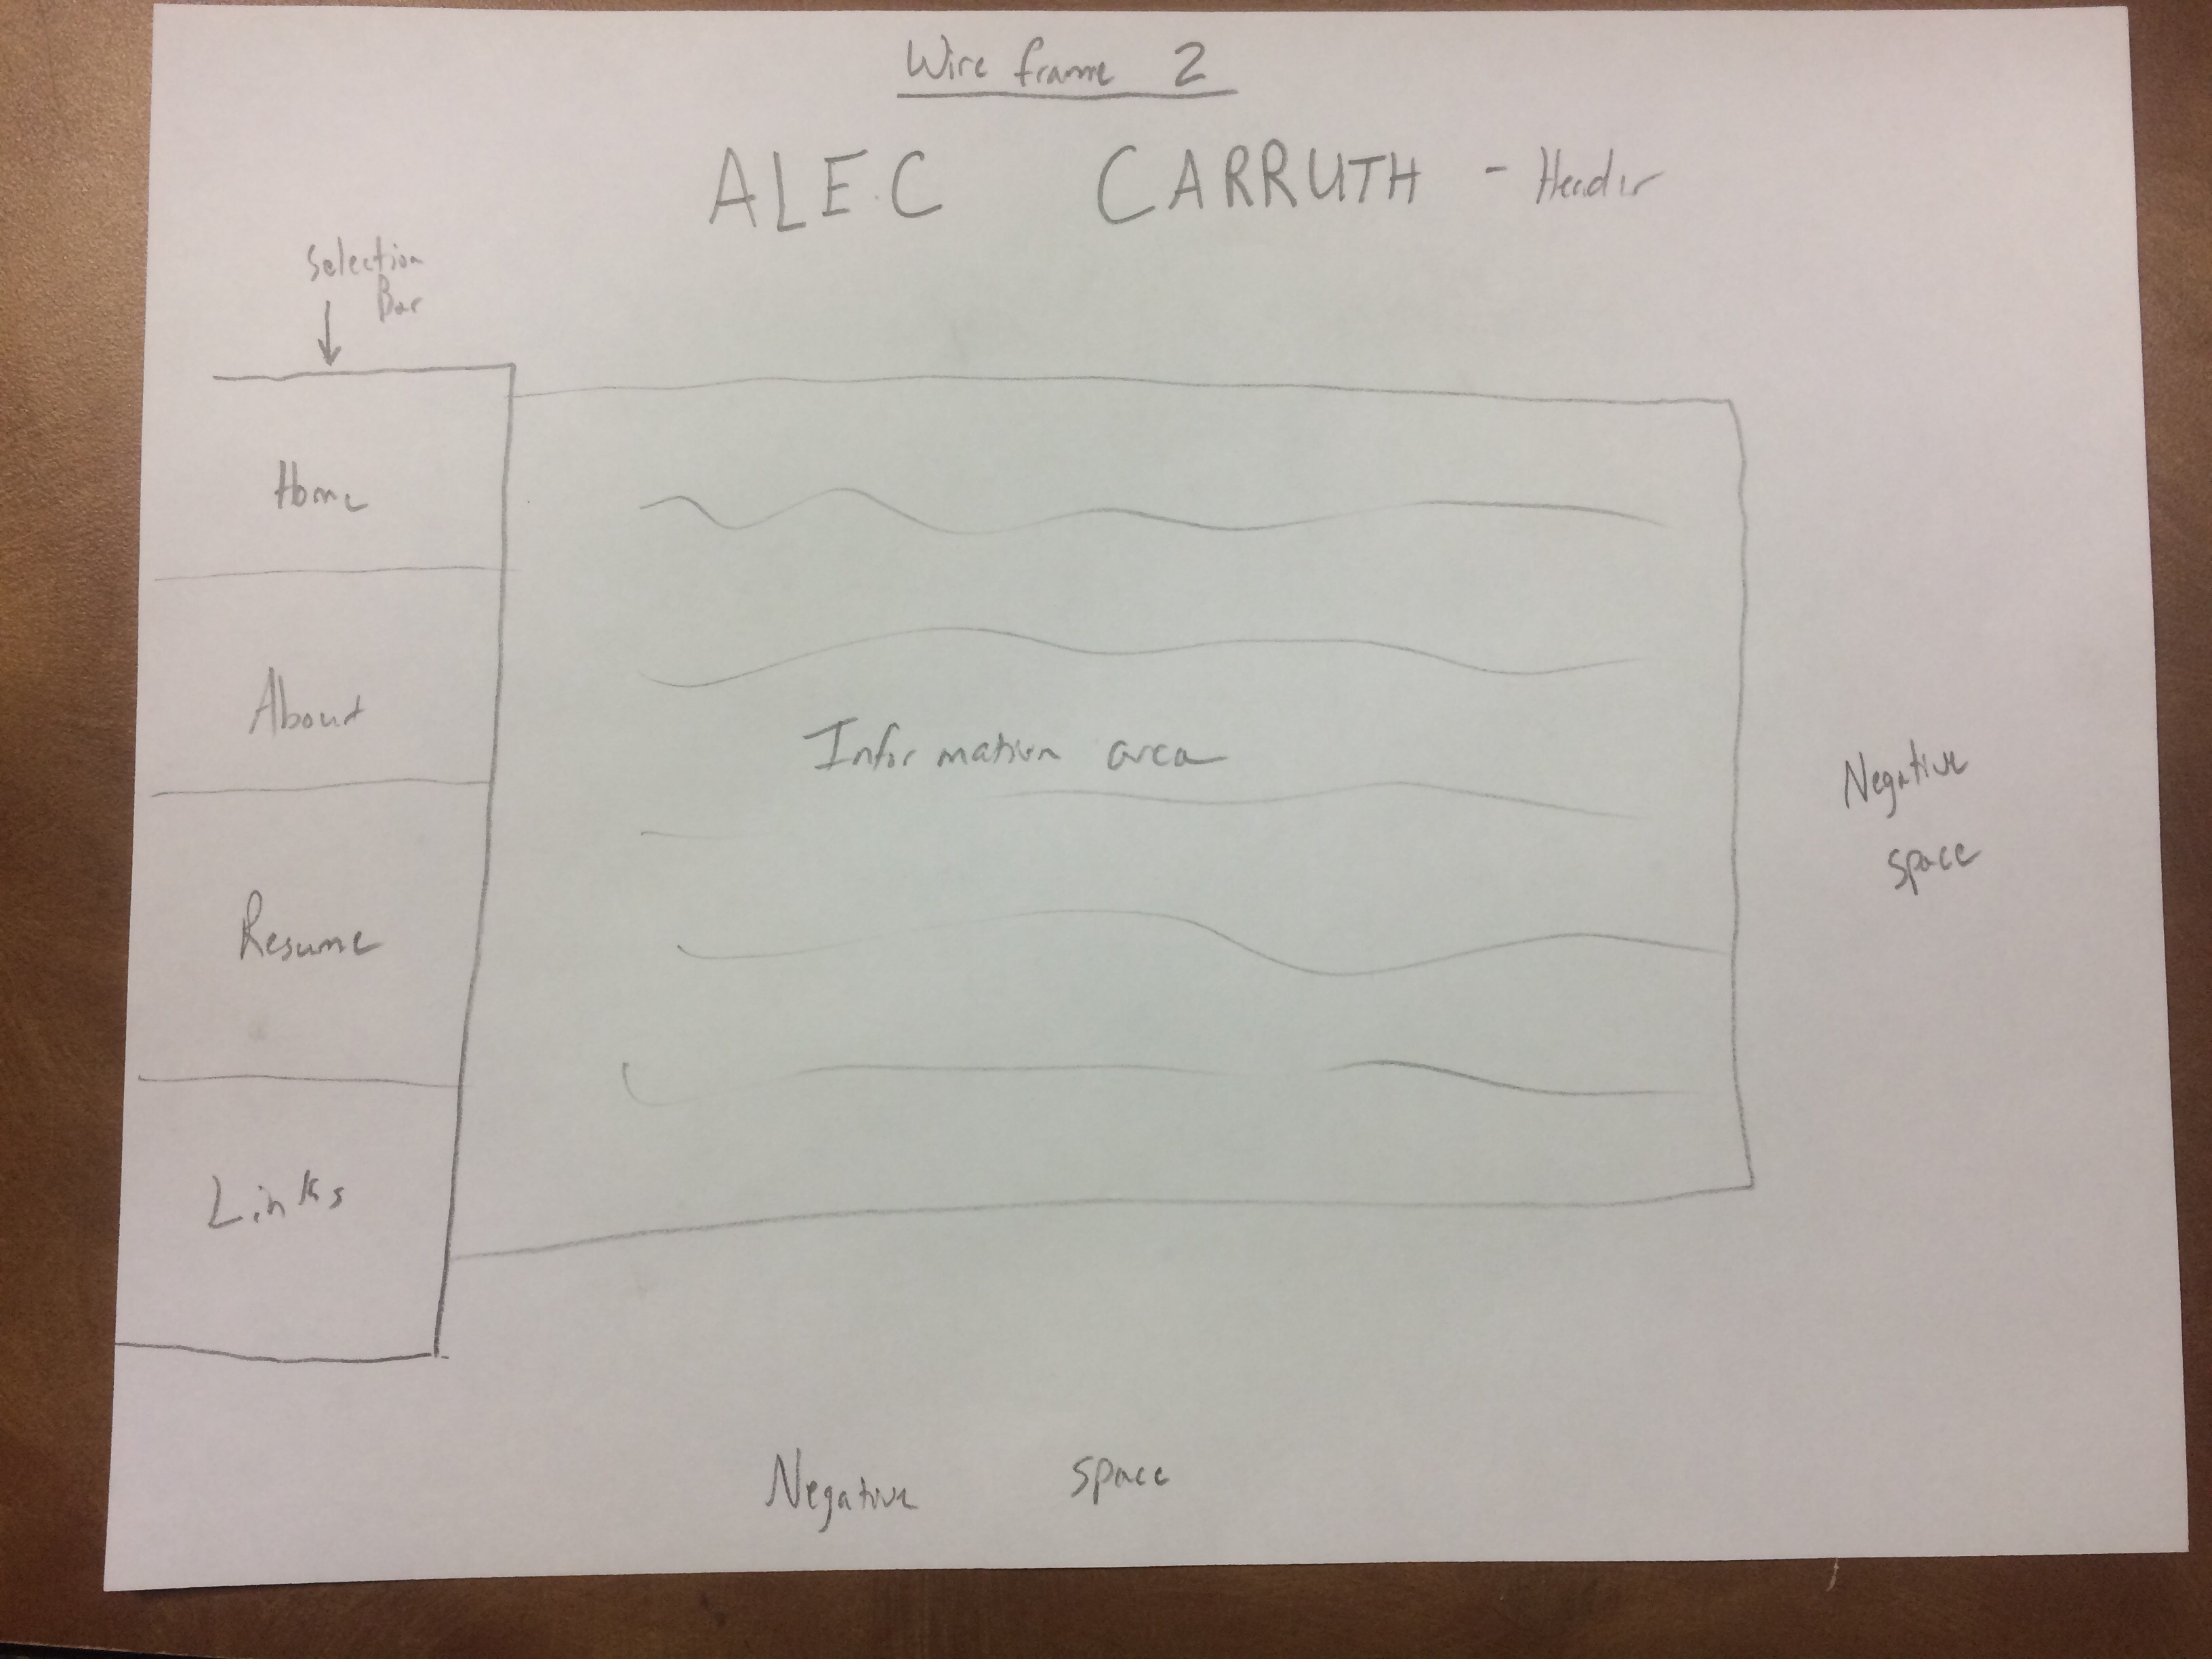 Wire frame 2
ALEC CARRUTH - Header
Selection
Bar
Home
About
Resume
Links
Information area
Negative
space
Negative space